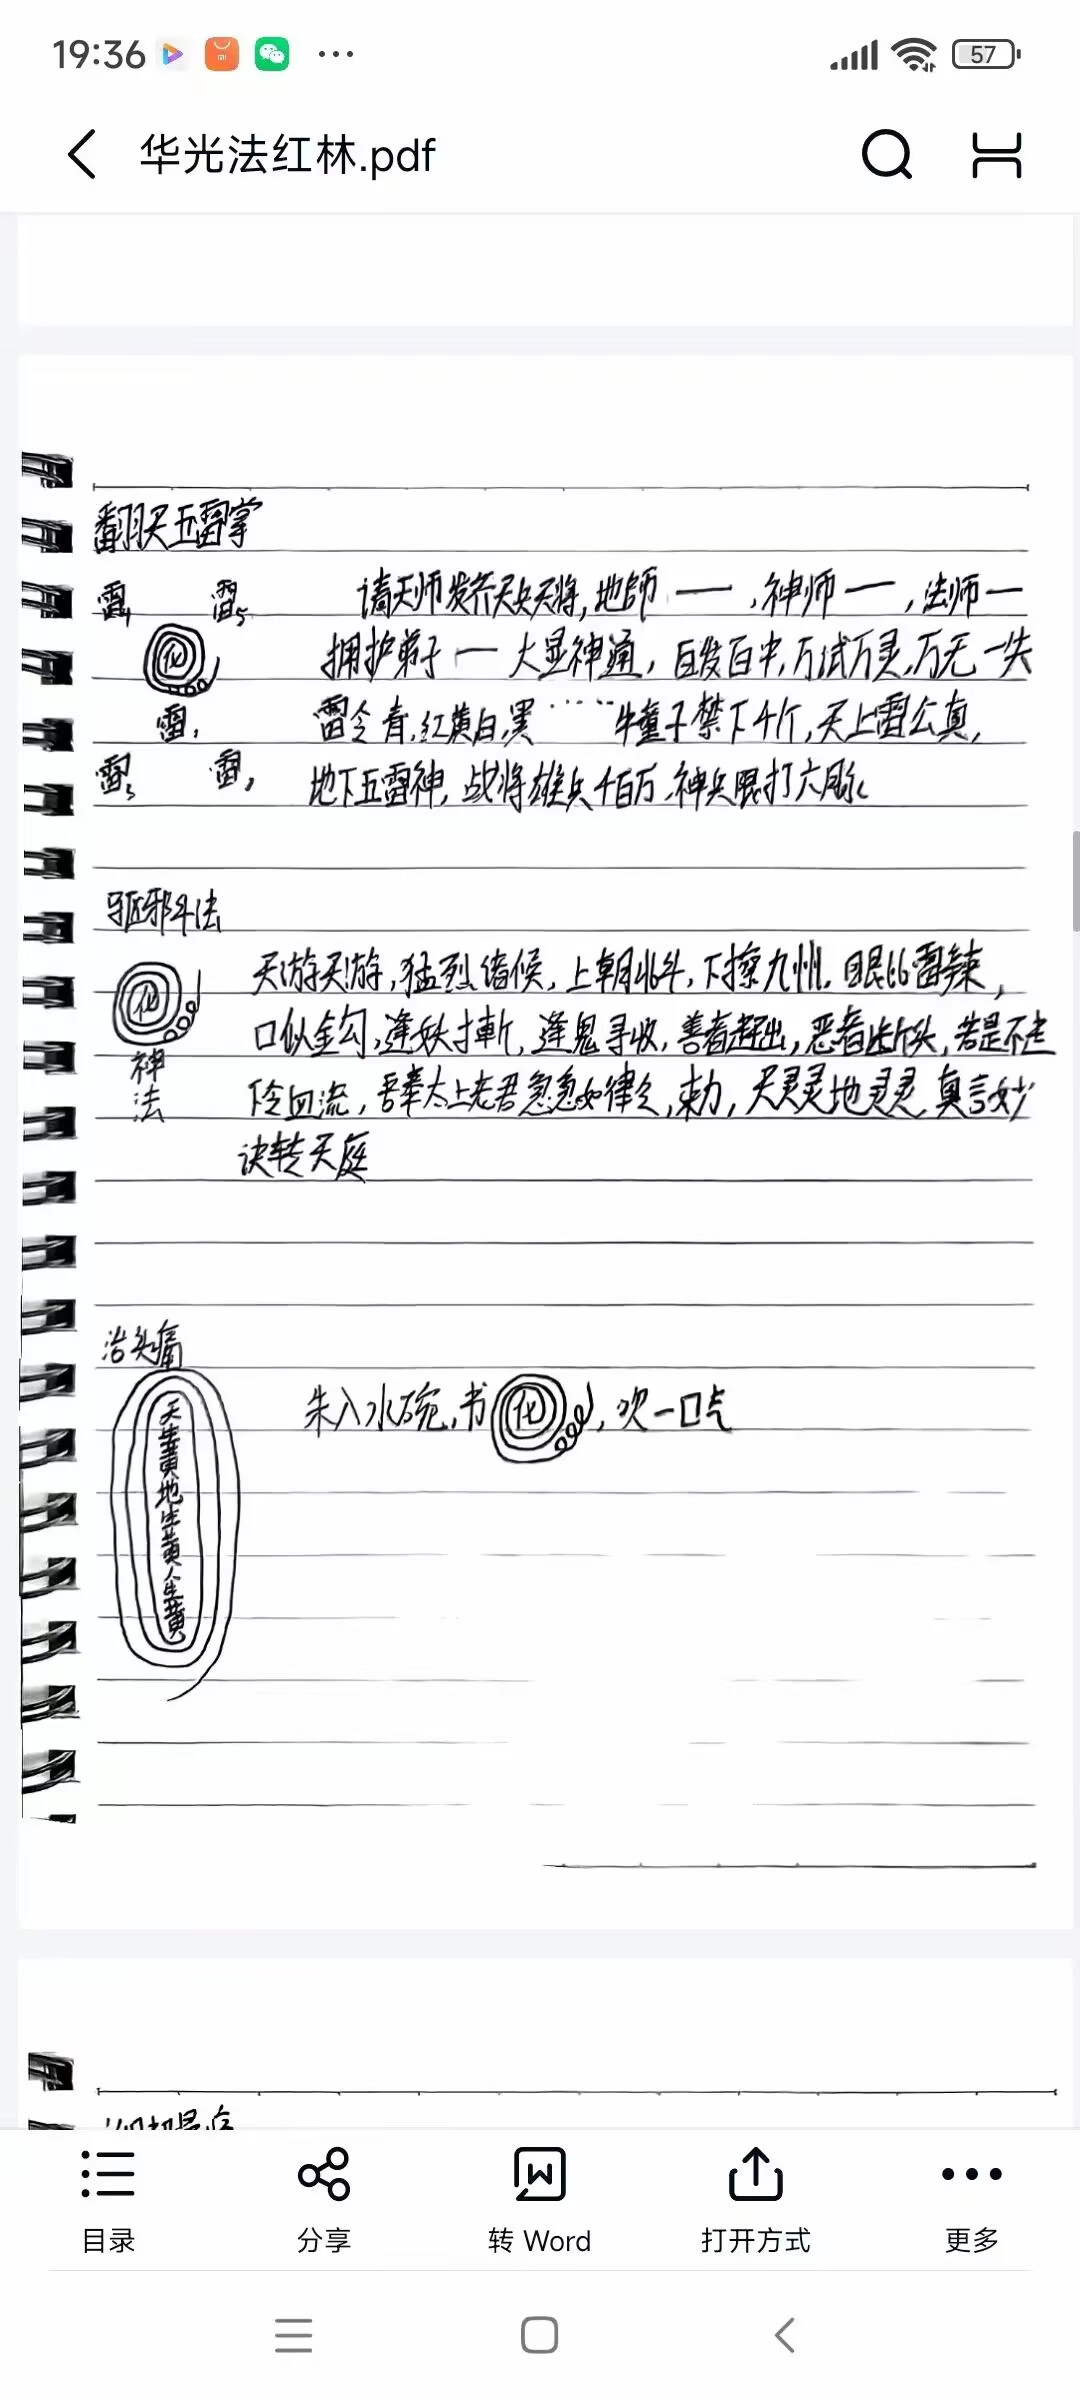 19:36
57
华光法红林.pdf
翻天五雷掌
雷4 雷5 请天师发齐天兵天将,地師一一,神师一一,法师一
化 拥护弟子一一大显神通,百发百中,万试万灵,万无一失
雷1 雷令青,红黄白,黑……牛童子禁下千斤,天上雷公真,
雷3 雷2 地下五雷神,战将雄兵千百万,神兵眼打六脉
驱邪斗法
化 天游天游,猛烈诸候,上朝北斗,下擦九州,目眼比雷辣,
口似金勾,逢妖才斬,逢鬼寻收,善者赶出,恶者断头,若是不走
神法
冷血流,吾奉太上老君急急如律令,束力,天灵灵地灵灵真言妙
诀转天庭
治头痛
天生黄地生黄人生黄
朱入水碗,书化,吹一口气
目录 分享 转 Word 打开方式 更多